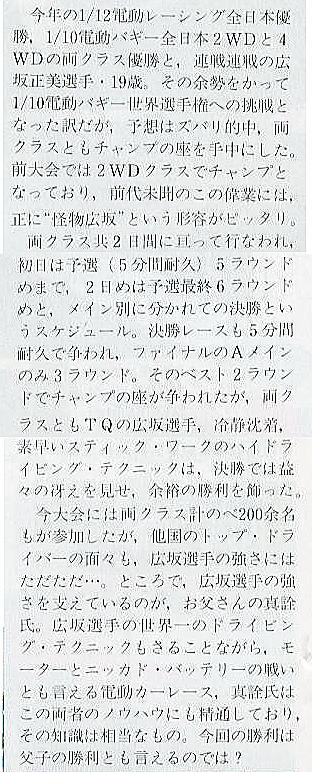 今年の1/12電動レーシング全日本優
勝，1/10電動バギー全日本２ＷＤと４
ＷＤの両クラス優勝と，連戦連戦の広
坂正美選手・19歳。その余勢をかって
1/10電動バギー世界選手権への挑戦と
なった訳だが，予想はズバリ的中，両
クラスともチャンプの座を手中にした。
前大会では２ＷＤクラスでチャンプと
なっており，前代未聞のこの偉業には，
正に“怪物広坂”という形容がピッタリ。
両クラス共２日間に亘って行なわれ，
初日は予選（５分間耐久）５ラウンド
めまで，２日めは予選最終６ラウンド
めと，メイン別に分かれての決勝とい
うスケジュール。決勝レースも５分間
耐久で争われ，ファイナルのＡメイン
のみ３ラウンド。そのベスト２ラウン
ドでチャンプの座が争われたが，両ク
ラスともＴＱの広坂選手，冷静沈着，
素早いスティック・ワークのハイドラ
イビング・テクニックは，決勝では益
々の冴えを見せ，余裕の勝利を飾った。
今大会には両クラス計のべ200余名
もが参加したが，他国のトップ・ドラ
イバーの面々も，広坂選手の強さには
ただただ…。ところで，広坂選手の強
さを支えているのが，お父さんの真詮
氏。広坂選手の世界一のドライビン
グ・テクニックもさることながら，モ
ーターとニッカド・バッテリーの戦い
とも言える電動カーレース，真詮氏は
この両者のノウハウにも精通しており，
その知識は相当なもの。今回の勝利は
父子の勝利とも言えるのでは？